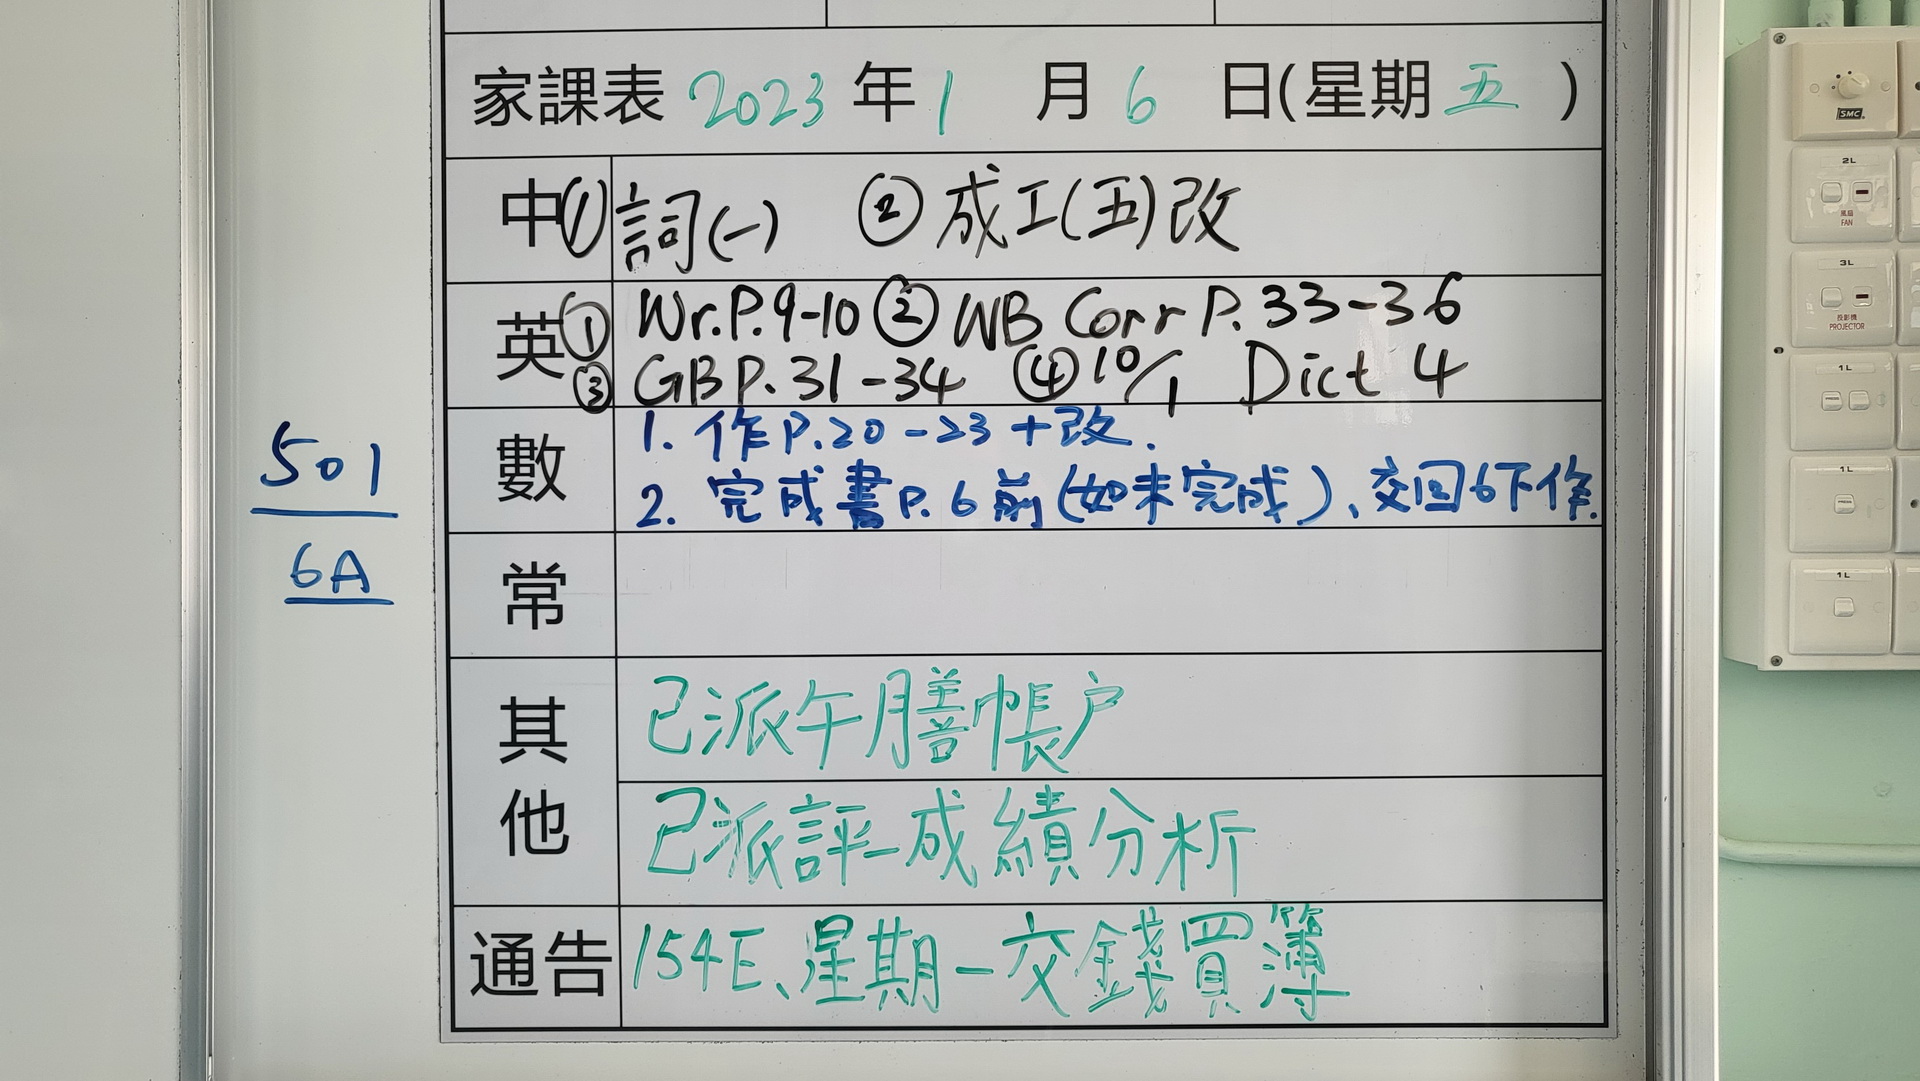 家課表 2023 年 1 月 6 日(星期 五 )
中 ① 詞(一) ② 成工(五)改
英 ① Wr.P.9-10 ② WB Corr P.33-36
③ GB P.31-34 ④ 10/1 Dict 4
數 1. 作P.20-23+改.
2. 完成書P.6前(如未完成)、交回6下作.
501
6A
常
其他 已派午膳帳户
已派評一成績分析
通告 154E、星期一交錢買簿
SMC
2L
風扇
FAN
3L
投影機
PROJECTOR
1L
1L
1L